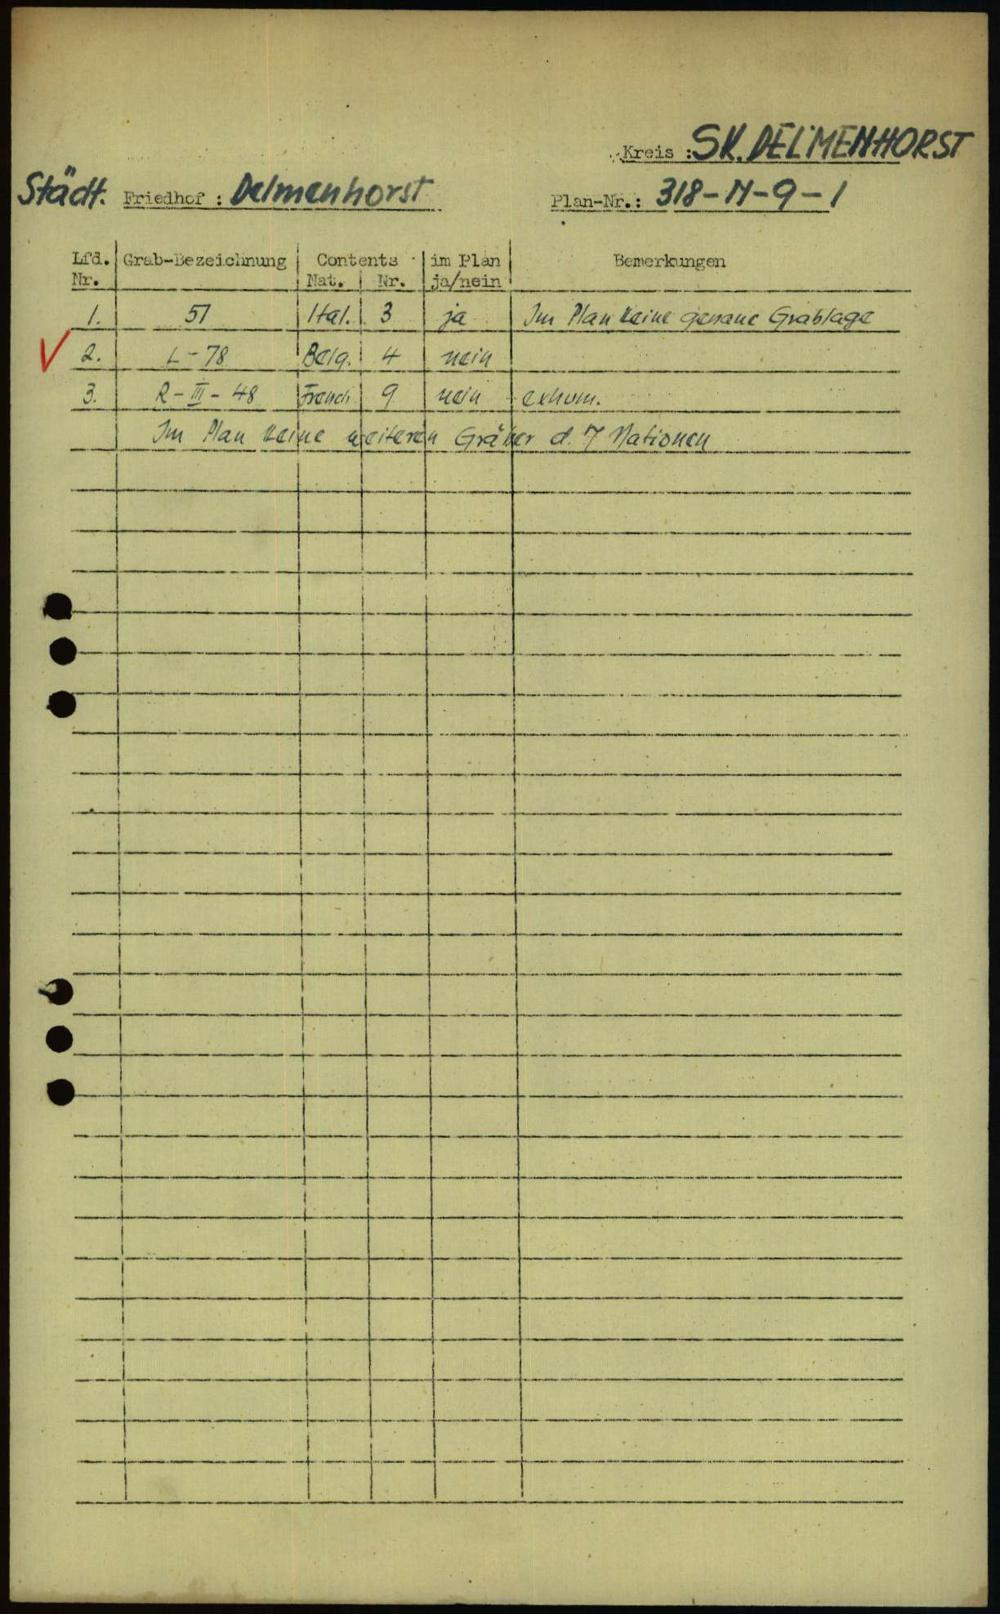 Kreis : SK. DELMENHORST
Städt. Friedhof : Delmenhorst Plan-Nr.: 318-N-9-1
Lfd. Nr. Grab-Bezeichnung Contents Nat. Nr. im Plan ja/nein Bemerkungen
1. 51 Ital. 3 ja Im Plan keine genaue Grablage
2. L-78 Belg. 4 nein
3. R-III-48 French 9 nein exhum.
Im Plan keine weiteren Gräber d. 7 Nationen